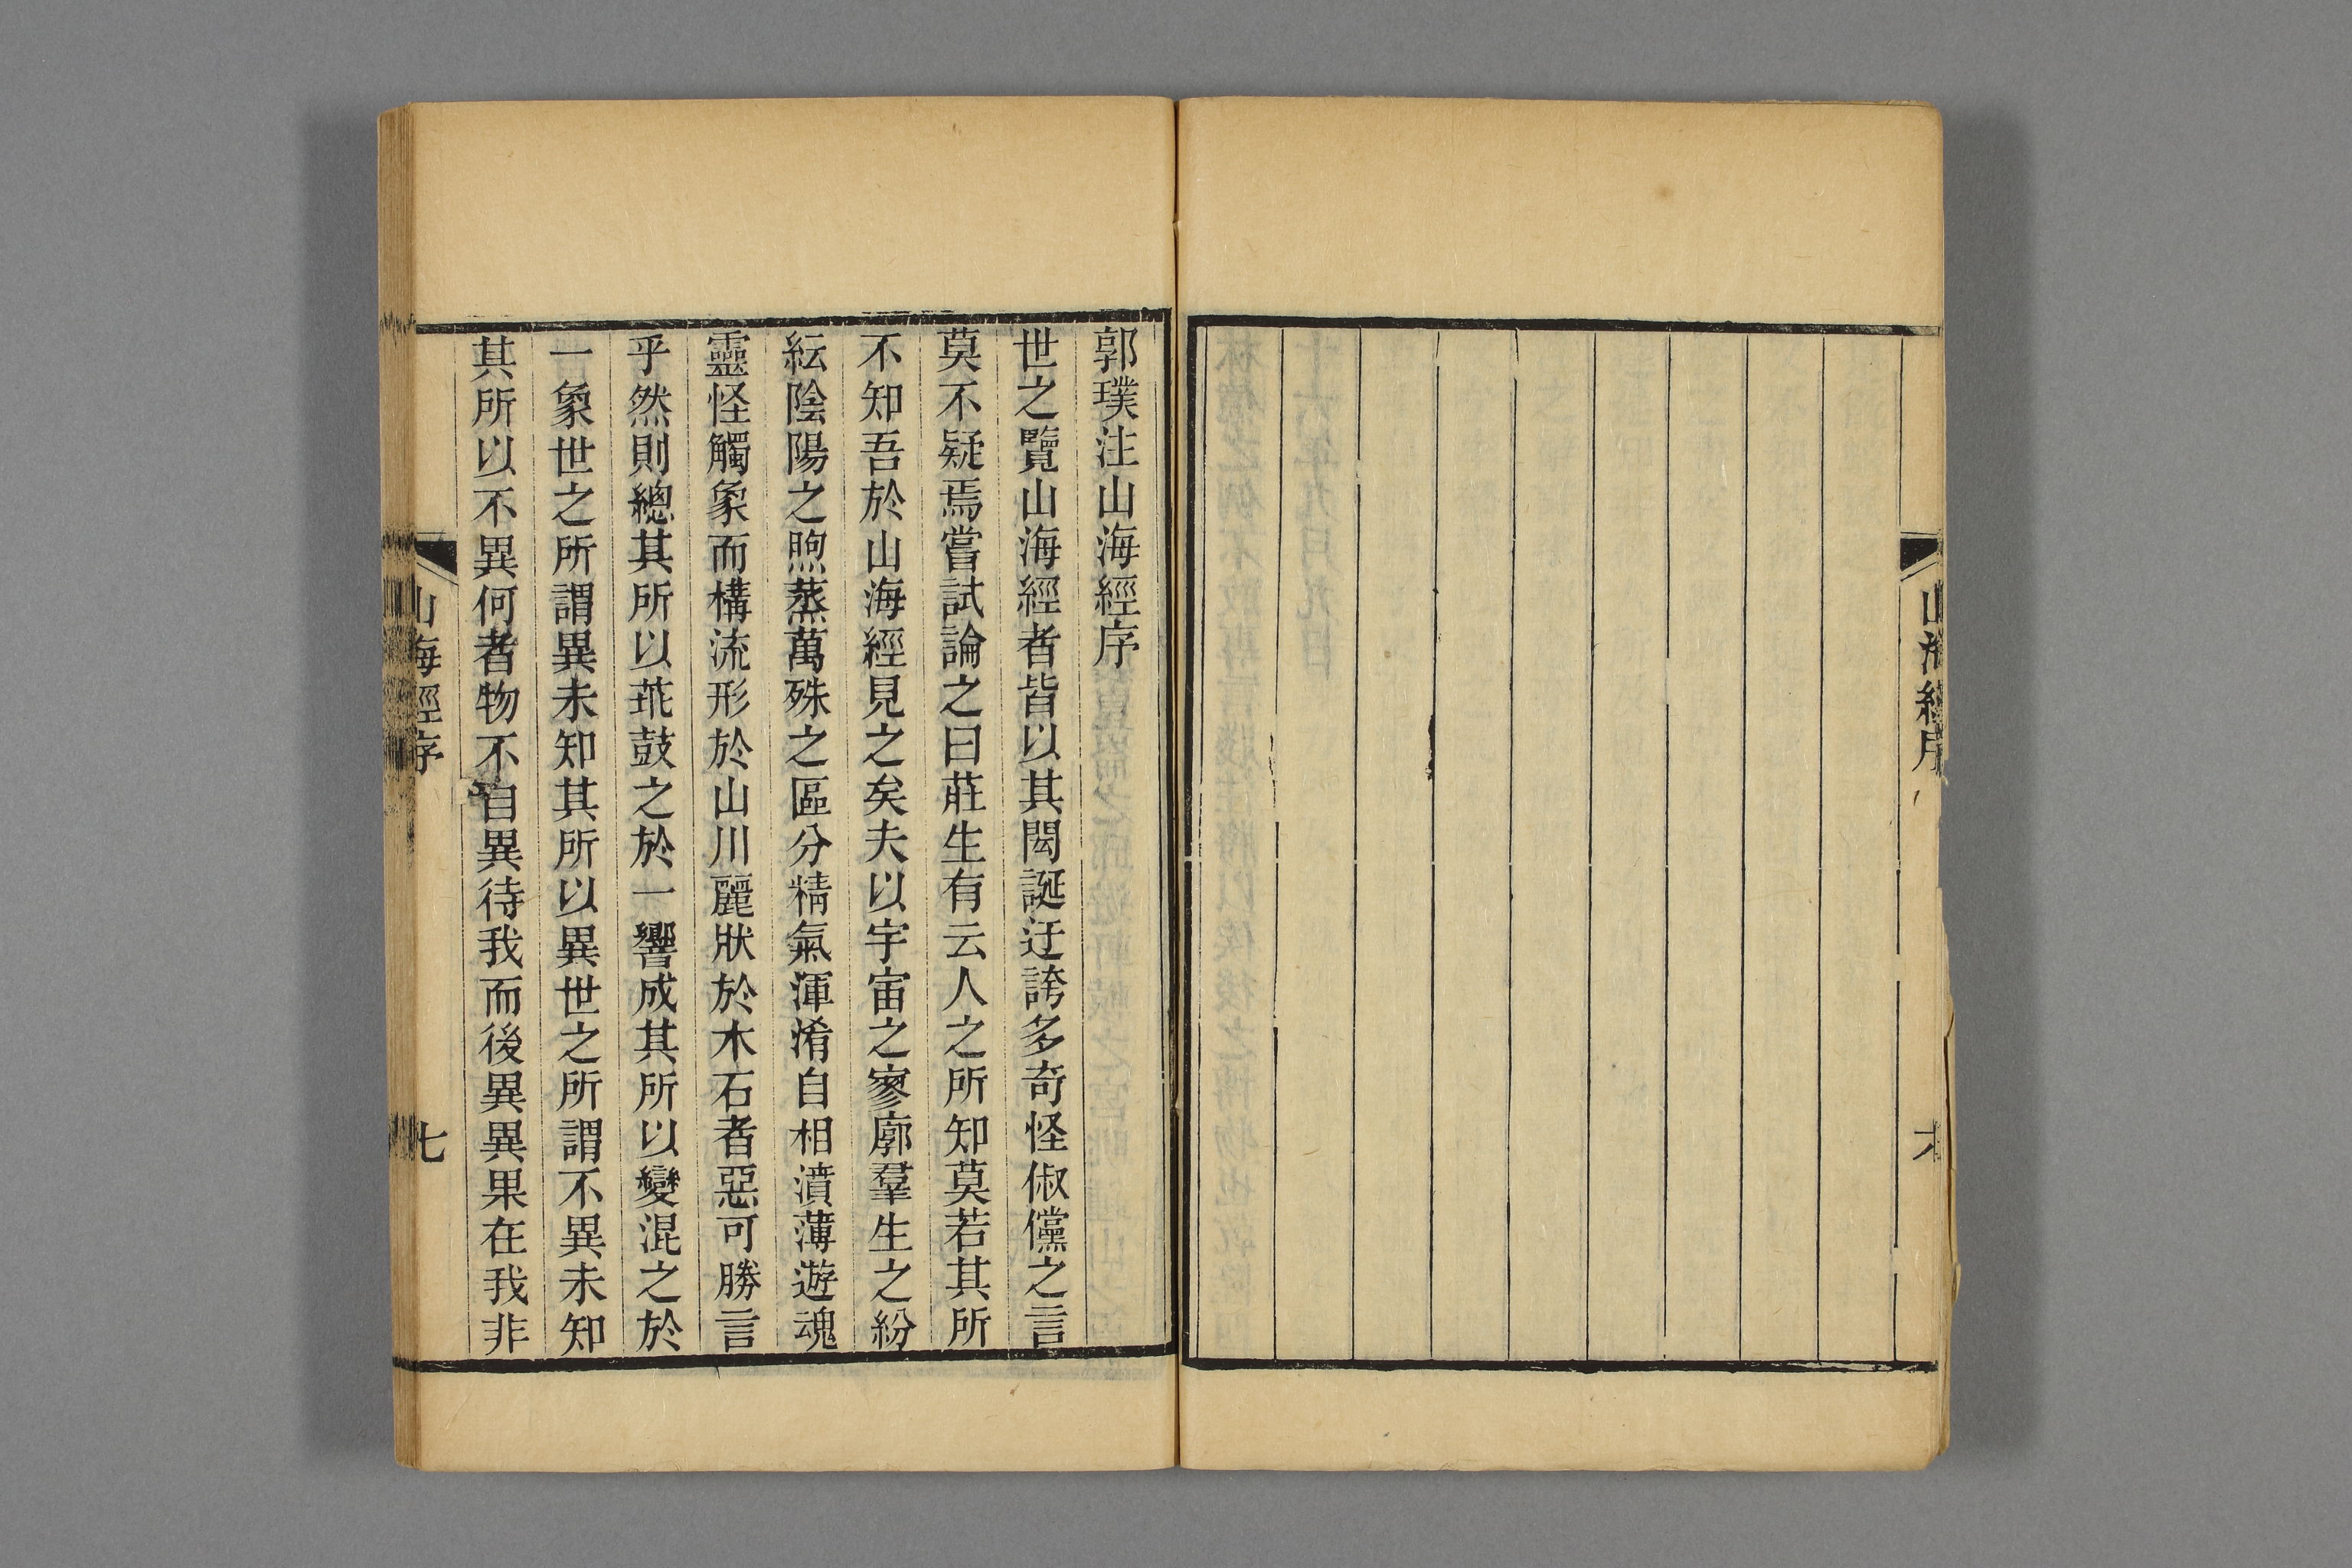 山海經序
郭璞注山海經序
世之覽山海經者皆以其閎誕迂誇多奇怪俶儻之言
莫不疑焉嘗試論之曰莊生有云人之所知莫若其所
不知吾於山海經見之矣夫以宇宙之寥廓羣生之紛
紜陰陽之煦蒸萬殊之區分精氣渾淆自相濆薄遊魂
靈怪觸象而構流形於山川麗狀於木石者惡可勝言
乎然則總其所以乖鼓之於一響成其所以變混之於
一象世之所謂異未知其所以異世之所謂不異未知
其所以不異何者物不自異待我而後異異果在我非
山海經序
七